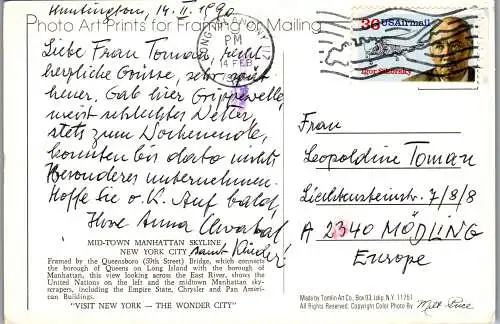 Huntington, 14. II. 1990
Photo Art Prints for Framing or Mailing
Liebe Frau Toman, recht
herzliche Grüsse, sehr spät
heuer. Gab hier Grippewelle,
meist schlechtes Wetter,
stets zum Wochenende,
konnten bis dato nichts
Besonderes unternehmen.
Hoffe Sie o.K. Auf bald,
Ihre Anna
samt Kinder!
MID-TOWN MANHATTAN SKYLINE
NEW YORK CITY
Framed by the Queensboro (59th Street) Bridge, which connects
the borough of Queens on Long Island with the borough of
Manhattan, this view looking across the East River, shows the
United Nations on the left and the midtown Manhattan sky-
scrapers, including the Empire State, Chrysler and Pan Ameri-
can Buildings.
"VISIT NEW YORK — THE WONDER CITY"
PM
14 FEB
36 USAirmail
Igor Sikorsky
Frau
Leopoldine Toman
Liechtensteinstr. 7/8/8
A 2340 MÖDLING
Europe
Made by Tomlin Art Co., Box 93, Islip, N.Y. 11751
All Rights Reserved, Copyright Color Photo By: Milt Price